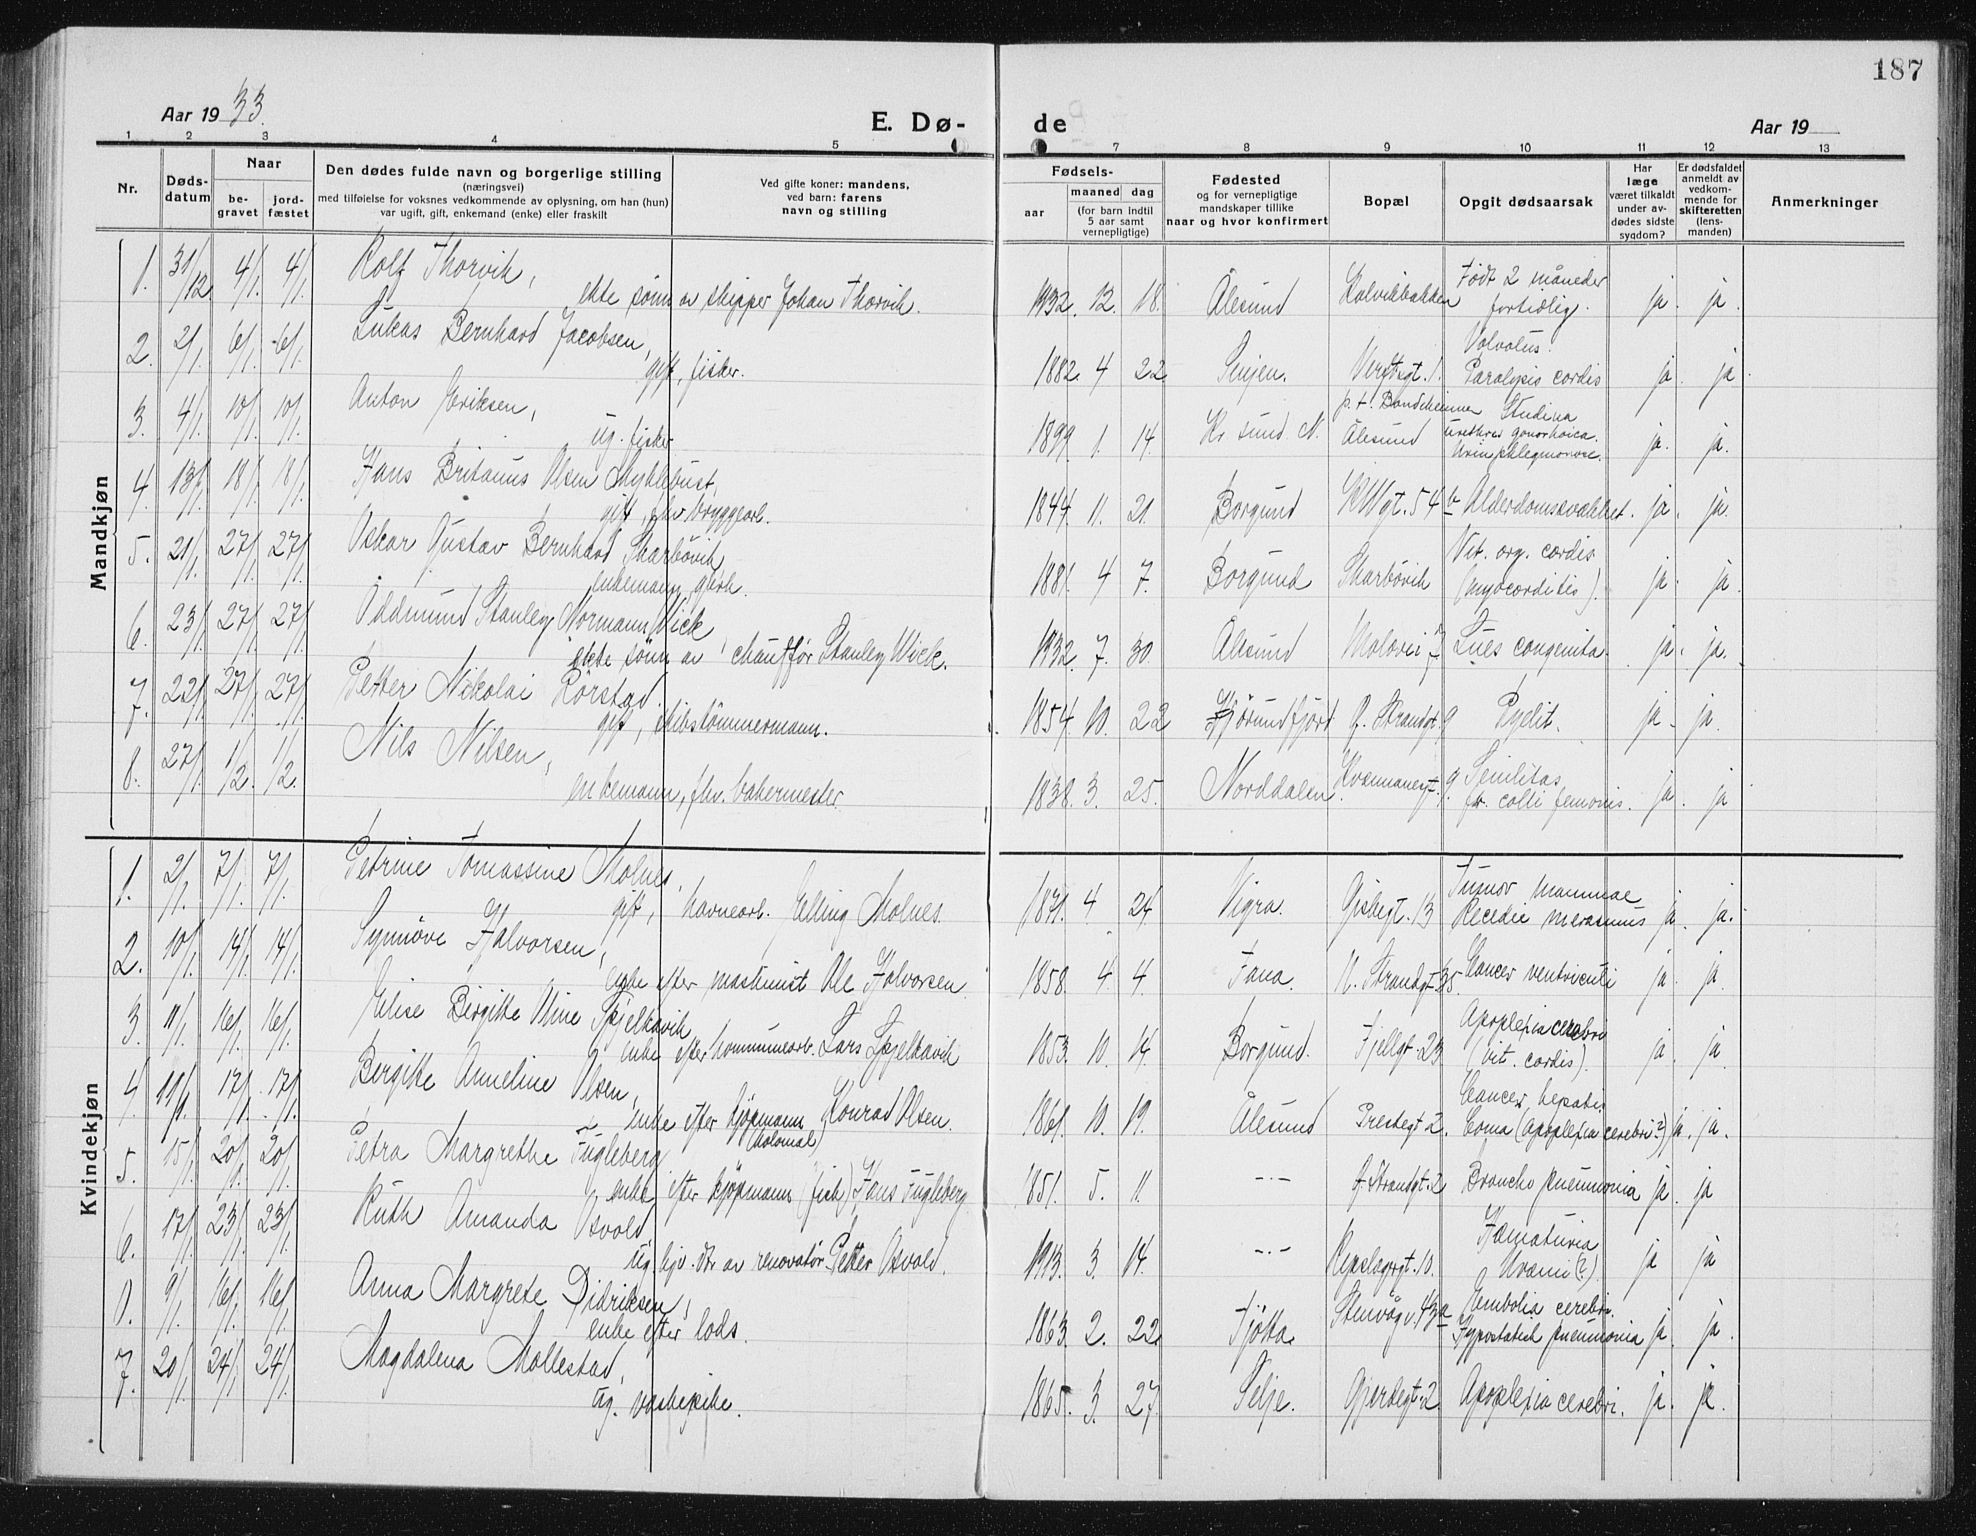 187
Aar 1933.
E. Dø-
de
Aar 19
1 2 3 4 5 7 7 8 9 10 11 12 13
Nr.
Døds-
datum
Naar
be-
gravet
jord-
fæstet
Den dødes fulde navn og borgerlige stilling
(næringsvei)
med tilføielse for voksnes vedkommende av oplysning, om han (hun)
var ugift, gift, enkemand (enke) eller fraskilt
Ved gifte koner: mandens,
ved barn: farens
navn og stilling
Fødsels-
aar
maaned
dag
(for barn indtil
5 aar samt
vernepligtige)
Fødested
og for vernepligtige
mandskaper tillike
naar og hvor konfirmert
Bopæl
Opgit dødsaarsak
Har
læge
været tilkaldt
under av-
dødes sidste
sygdom?
Er dødsfaldet
anmeldt av
vedkom-
mende for
skifteretten
(lens-
manden)
Anmerkninger
Mandkjøn
1. 31/12 4/1. 4/1. Rolf Thorvik,
ekte sønn av skipper Johan Thorvik. 1932. 12. 18. Ålesund Kolvikbakken Født 2 måneder
fortidlig. ja. ja.
2. 2/1. 6/1. 6/1. Lukas Bernhard Jacobsen,
gift, fisker. 1882. 4 22 Senjen. Verftsgt. 1. Volvolus.
Paralysis cordis ja. ja.
3. 4/1. 10/1. 10/1. Anton Eriksen,
ug. fisker 1899. 1. 14. Kr sund N. p. t.
Ålesund urethrae gonorhoica.
ja. ja.
4. 13/1. 18/1. 18/1. Hans Britanus Olsen Myklebust,
gift, fhv. bryggearb. 1844. 11. 21. Borgund KWgt. 54 b Alderdomssvakhet. ja. ja.
5. 21/1. 27/1. 27/1. Oskar Gustav Bernhard Skarbövik
enkemann, 1881. 4 7. Borgund Skarbövik Vit. org. cordis
(myocarditis). ja. ja.
6. 23/1. 27/1. 27/1. Oddmund Stanley Normann Wick
ekte sönn av chaufför Stanley Wick. 1932. 7. 30. Ålesund Molovei 7 Lues congenita. ja. ja.
7. 22/1. 27/1. 27/1. Petter Nikolai Rörstad.
gift, skibstömmermann. 1854. 10. 22 Hjörundfjord Strandgt. 9 Pyelit. ja. ja.
8. 27/1. 1/2. 1/2. Nils Nilsen,
enkemann, fhv. bakermester. 1838. 3. 25. Norddalen. 9. Senilitas
fr. colli femoris. ja. ja
Kvindekjøn
1. 2/1. 7/1. 7/1. Petrine Tomassine Molnes.
gift, havnearb. Elling Molnes. 1871. 4 24 Vigra. Gisbegt. 13 Tumor mammae
ja. ja.
2. 10/1. 14/1. 14/1. Synnöve Halvorsen,
enke efter maskinist Ole Halvorsen. 1858. 4. 4. Fana. N. Strandgt. 35. Kancer ventriculi ja. ja.
3. 11/1. 16/1. 16/1. Elise Birgitte Oline Spjelkavik
enke efter kommunearb. Lars Spjelkavik 1853. 10. 14. Borgund. Fjellgt. 23 Apoplexia cerebri
(vit. cordis). ja. ja
4. 11/1. 17/1. 17/1. Bergitte Anneline Olsen,
enke efter kjøpmann Konrad Olsen.
(kolonial) 1861. 10. 19. Ålesund Prestegt. 2. Cancer hepatis
Coma (apoplexia cerebri?) ja. ja.
5. 15/1. 20/1. 20/1. Petra Margrethe Fugleberg
enke efter kjøpmann (fisk) Hans Fugleberg 1851. 5. 11 -"- Strandgt. 2 Broncho pneumonia ja. ja
6. 17/1. 23/1. 23/1. Ruth Amanda Osvold
ug. hjv. dtr. av renovatör Petter Osvold. 1913. 3. 14. -"- Repslagergt. 10. Hæmaturia
Uræmi (?). ja ja
0. 9/1. 16/1. 16/1. Anna Margrete Didriksen,
enke efter lods. 1863. 2. 22 Tjötta Stenvåg v. 43a Embolia cerebri.
Hypostatisk pneumonia ja. ja.
7. 20/1. 24/1. 24/1. Magdalena Mollestad,
ug. vaskepike. 1865. 3. 27. Selje. Gjerdegt. 2. Apoplexia cerebri. ja. ja.